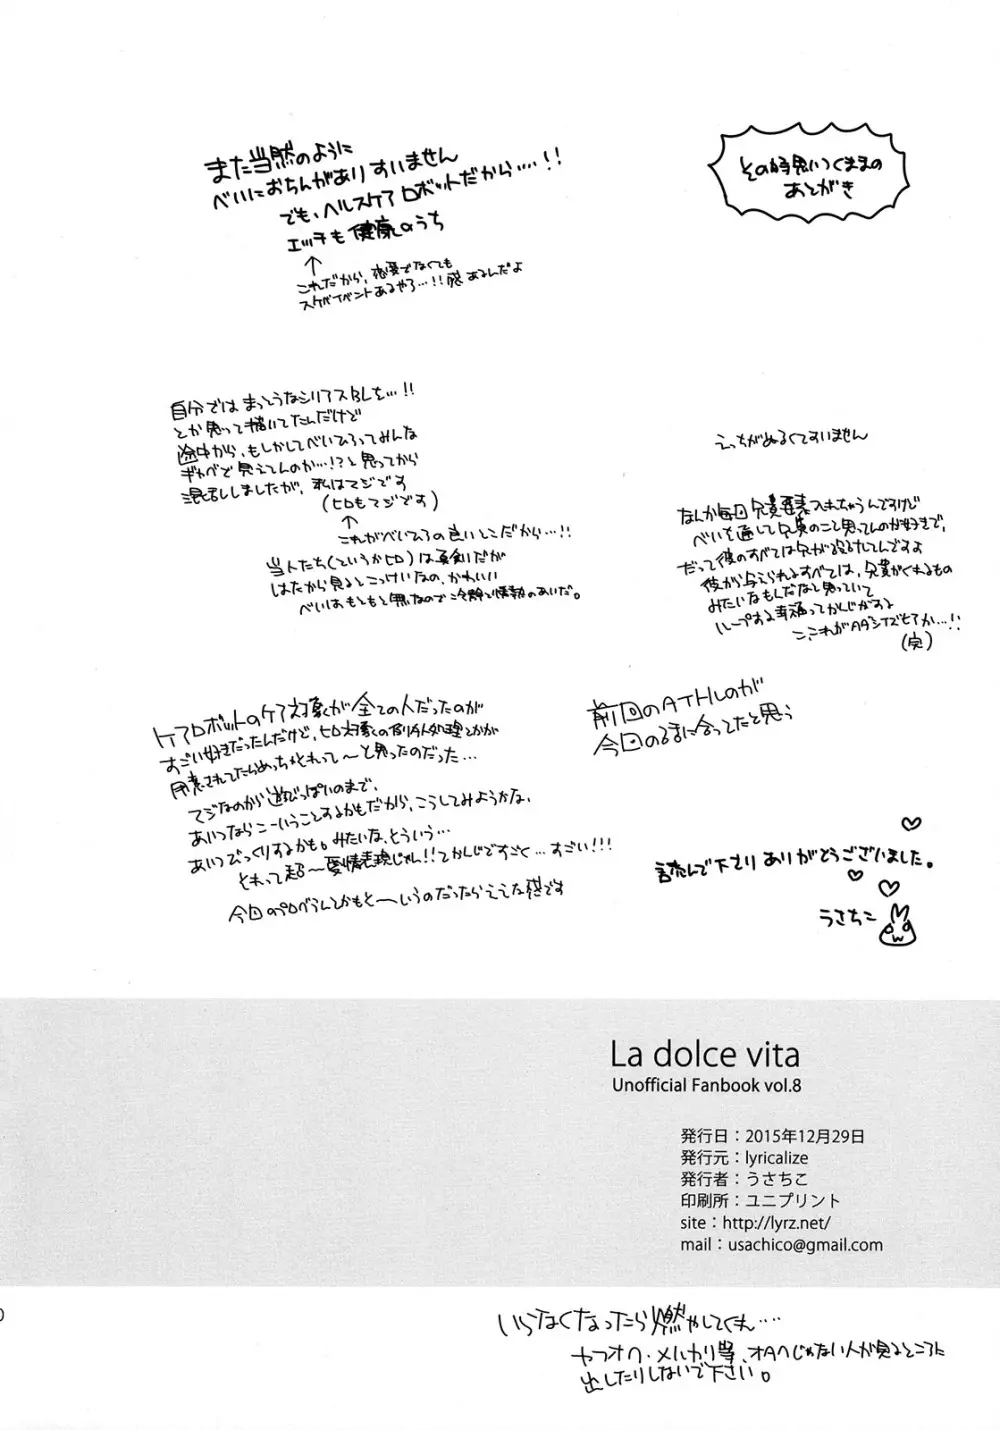 その時思いつくままの
あとがき
また当然のように
べいにおちんがありすいません
でも、ヘルスケアロボットだから….!!
エッチも健康のうち
↑
これだから、恋愛でなくても
スケベイベントあるやろ…!!感あるんだよ
自分ではまっとうなシリアスBLを…!!
とか思って描いてたんだけど
途中から、もしかしてべいひろってみんな
ギャグで見えてんのか…!?と思ってから
混乱しましたが、私はマジです
(ヒロもマジです)
↑
これがべいひろの良いとこだから…!!
当人たち(というかヒロ)は真剣だが
はたから見るとこっけいなの、かわいい
べいはもともと無なので冷静と情熱のあいだ。
えっちがぬるくてすいません
なんか毎回兄貴要素入れちゃうんですけど
べいを通して兄貴のこと思ってんのが好きで、
だって彼のすべては兄が設けてんですよ
彼が与えられるすべては、兄貴がくれるもの
みたいなもんだなと思っていて
ループする幸福ってかんじがする
こ、これがAAダシTズモアか…!!
(完)
ケアロボットのケア対象が全ての人だったのが
すごい好きだったんだけど、ヒロ対象の例外処理とかが
用意されてたらめっちゃそれって〜と思ったのだった…
マジなのから遊びっぽいのまで、
あいつならこーいうことするかもだから、こうしてみようかな、
あいつびっくりするかも。みたいな、そういう…
それって超〜愛情表現じゃん!!てかんじですごく…すごい!!!
今回のプロペラんとかもそーいうのだったらええな感です
前回のAイトルのが
今回のるまに合ってたと思う
読んで下さりありがとうございました。
うさちこ
La dolce vita
Unofficial Fanbook vol.8
発行日：2015年12月29日
発行元：lyricalize
発行者：うさちこ
印刷所：ユニプリント
site：http://lyrz.net/
mail：usachico@gmail.com
いらなくなったら燃やしてくれ….
ヤフオク・メルカリ等、オタクじゃない人が見るところに
出したりしないで下さい。